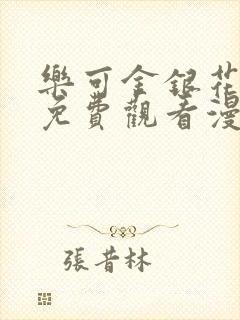 樂可金銀花
免費觀看漫
張昔林